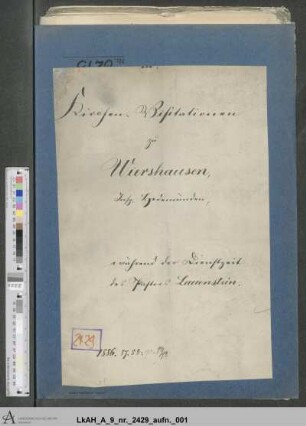 Kirchen-Visitationen
zu
Wiershausen,
Insp. Hedemünden,
während der Dienstzeit
des Pastors Lauenstein.
2429
1886. 17.
LkAH_A_9_nr._2429_aufn._001